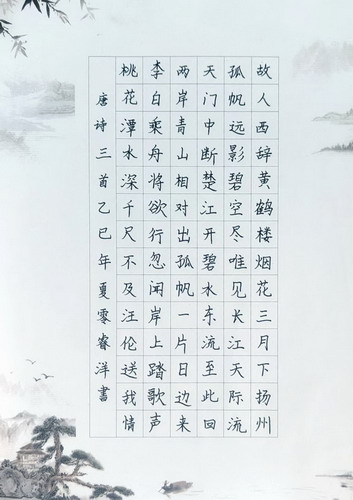 故人西辞黄鹤楼烟花三月下扬州
孤帆远影碧空尽唯见长江天际流
天门中断楚江开碧水东流至此回
两岸青山相对出孤帆一片日边来
李白乘舟将欲行忽闻岸上踏歌声
桃花潭水深千尺不及汪伦送我情
唐诗三首乙巳年夏零睿洋書